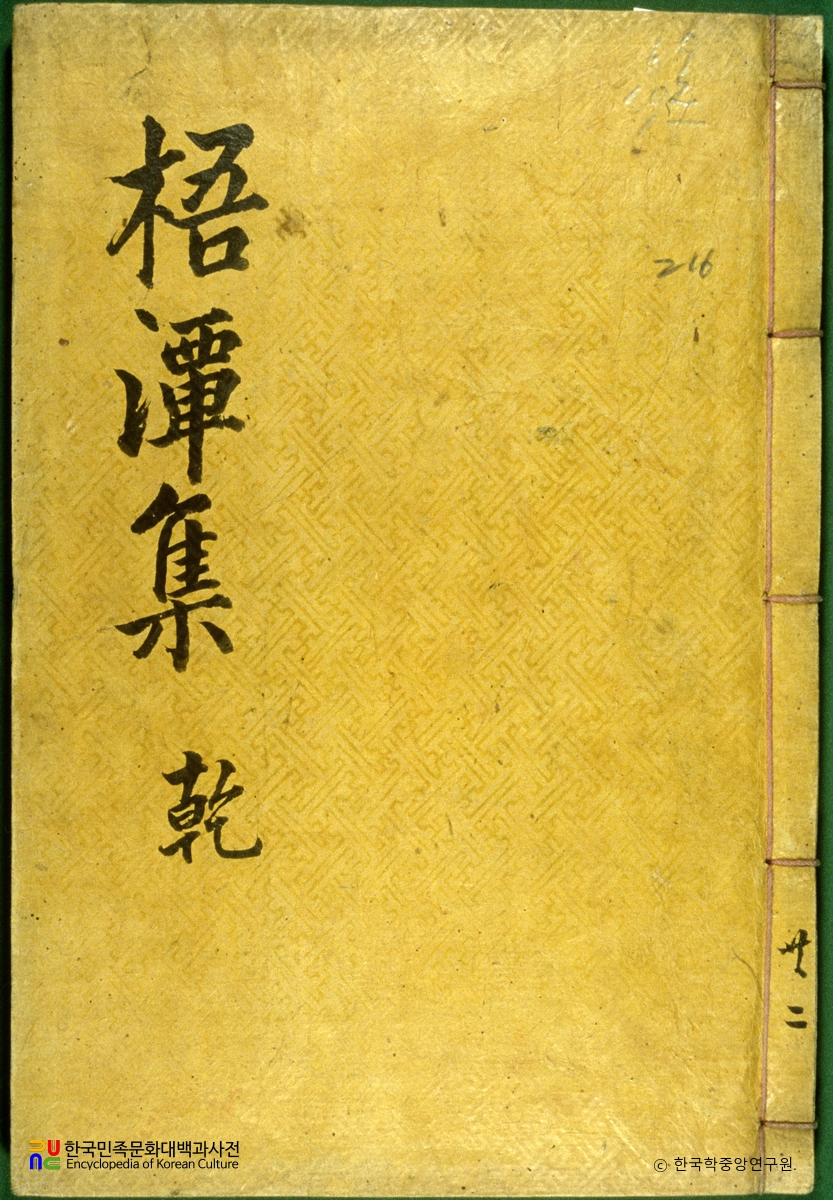 梧潭集 乾
216
共二
한국민족문화대백과사전
Encyclopedia of Korean Culture
ⓒ 한국학중앙연구원.